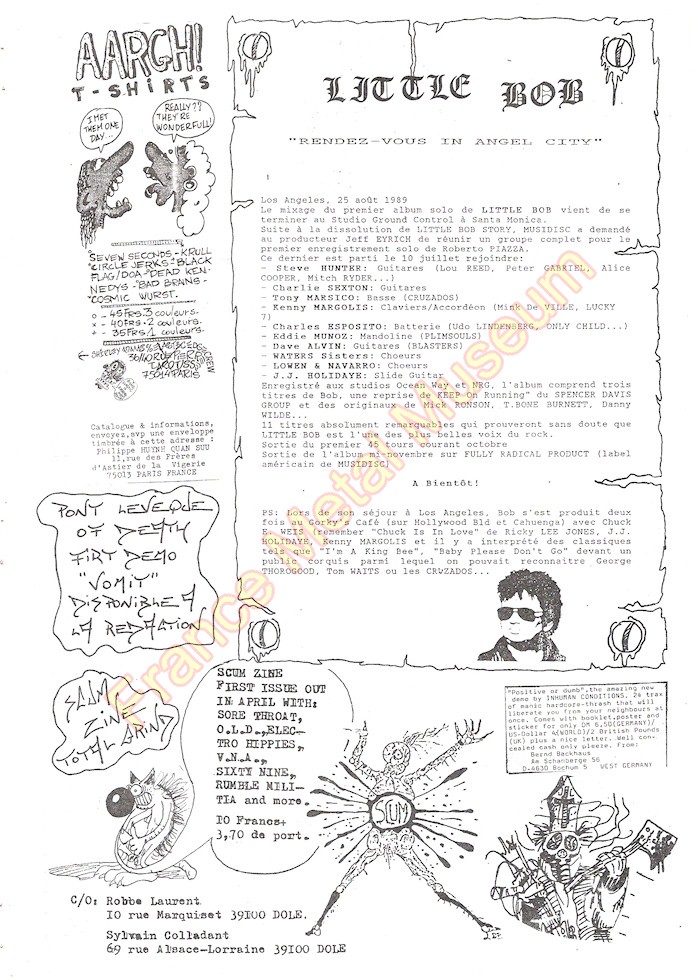 AARGH!
T-SHIRTS
I MET
THEM ONE
DAY...
REALLY??
THEY'RE
WONDERFULL!
SEVEN SECONDS - KRULL
"CIRCLE JERKS - BLACK
FLAG/DOA - "DEAD KEN-
NEDYS - "BAD BRAINS -
"COSMIC WURST.
o - 45FRS. 3 couleurs.
x - 40FRS. 2 couleurs.
+ - 35FRS. 1 couleurs.
75014 PARIS
Catalogue & informations,
envoyez,svp une enveloppe
timbrée à cette adresse :
Philippe HUYNH QUAN SUU
11,rue des Frères
d'Astier de la Vigerie
75013 PARIS FRANCE
LITTLE BOB
"RENDEZ-VOUS IN ANGEL CITY"
Los Angeles, 25 août 1989
Le mixage du premier album solo de LITTLE BOB vient de se
terminer au Studio Ground Control à Santa Monica.
Suite à la dissolution de LITTLE BOB STORY, MUSIDISC a demandé
au producteur Jeff EYRICH de réunir un groupe complet pour le
premier enregistrement solo de Roberto PIAZZA.
Ce dernier est parti le 10 juillet rejoindre:
- Steve HUNTER: Guitares (Lou REED, Peter GABRIEL, Alice
COOPER, Mitch RYDER...)
- Charlie SEXTON: Guitares
- Tony MARSICO: Basse (CRUZADOS)
- Kenny MARGOLIS: Claviers/Accordéon (Mink De VILLE, LUCKY
7)
- Charles ESPOSITO: Batterie (Udo LINDENBERG, ONLY CHILD...)
- Eddie MUNOZ: Mandoline (PLIMSOULS)
- Dave ALVIN: Guitares (BLASTERS)
- WATERS Sisters: Choeurs
- LOWEN & NAVARRO: Choeurs
- J.J. HOLIDAYE: Slide Guitar
Enregistré aux studios Ocean Way et NRG, l'album comprend trois
titres de Bob, une reprise de KEEP On Running" du SPENCER DAVIS
GROUP et des originaux de Mick RONSON, T.BONE BURNETT, Danny
WILDE...
11 titres absolument remarquables qui prouveront sans doute que
LITTLE BOB est l'une des plus belles voix du rock.
Sortie du premier 45 tours courant octobre
Sortie de l'album mi-novembre sur FULLY RADICAL PRODUCT (label
américain de MUSIDISC)
A Bientôt!
PS: Lors de son séjour à Los Angeles, Bob s'est produit deux
fois au Gorky's Café (sur Hollywood Bld et Cahuenga) avec Chuck
E. WEIS (remember "Chuck Is In Love" de Ricky LEE JONES, J.J.
HOLIDAYE, Kenny MARGOLIS et il y a interprété des classiques
tels que "I'm A King Bee", "Baby Please Don't Go" devant un
public conquis parmi lequel on pouvait reconnaître George
THOROGOOD, Tom WAITS ou les CRUZADOS...
PONT LEVEQUE
OF DEATH
FIRT DEMO
"VOMIT"
DISPONIBLE A
LA REDACTION
SLAM
ZINE
TOTAL GRIND
SCUM ZINE
FIRST ISSUE OUT
IN APRIL WITH:
SORE THROAT,
O.L.D., ELEC-
TRO HIPPIES,
V.N.A.,
SIXTY NINE,
RUMBLE MILI-
TIA and more.
IO Francs+
3,70 de port.
SCUM
"Positive or dumb",the amazing new
demo by INHUMAN CONDITIONS. 24 trax
of manic hardcore-thrash that will
liberate you from your neighbours at
once. Comes with booklet,poster and
sticker for only DM 6,50(GERMANY)/
US-Dollar 4(WORLD)/2 British Pounds
(UK) plus a nice letter. Well con-
cealed cash only pleeze. From:
Bernd Backhaus
Am Schanberge 56
D-4630 Bochum 5 WEST GERMANY
C/O: Robbe Laurent
IO rue Marquiset 39IOO DOLE.
Sylwain Colladant
69 rue Alsace-Lorraine 39IOO DOLE
France Metal Museum